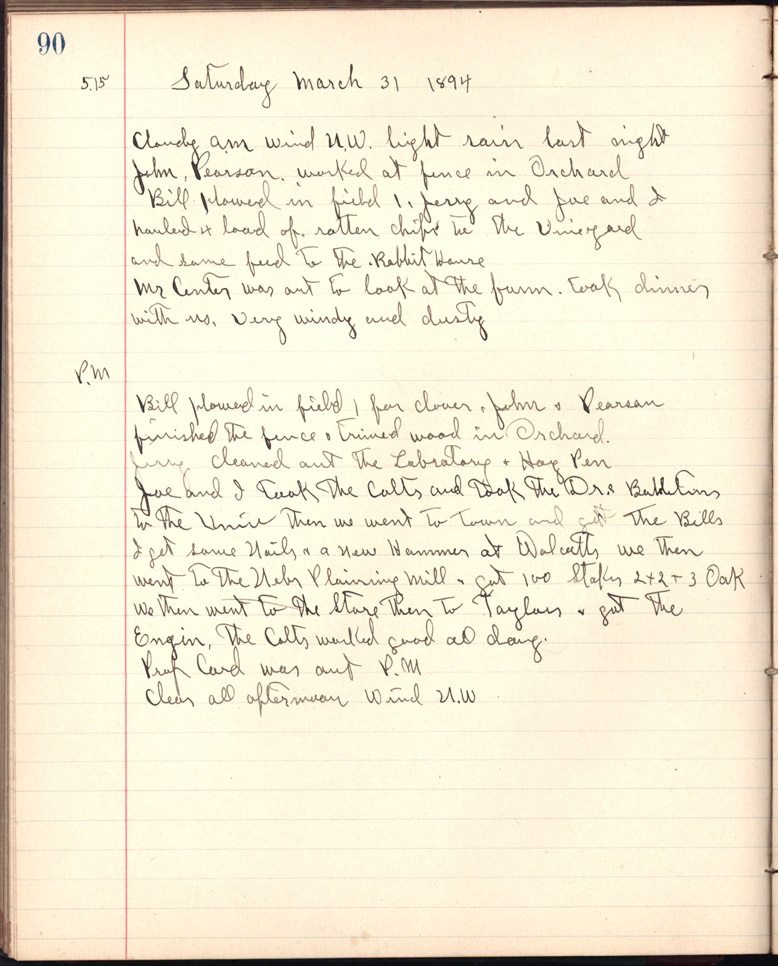 90
5.15 Saturday March 31 1894
Cloudy a.m wind N.W. light rain last night
John, Pearson. worked at fence in Orchard
Bill plowed in field 1, Jerry and Joe and I
hauled 4 load of rotten chips to the Vineyard
and some feed to the Rabbit House
Mr Center was out to look at the farm. took dinner
with us. Very windy and dusty
P.M
Bill plowed in field 1 for clover. John & Pearson
finished the fence & trimed wood in Orchard.
Jerry cleaned out the Labratory & Hog Pen
Joe and I took the Colts and took the Dr.s Bulletins
to the Univ then we went to town and got the Bills
I get some Nails & a new Hammer at Wolcotts we then
went to the Nebr Plaining Mill & got 100 Stakes 2+2+3 Oak
we then went to the Store then to Taylors & got the
Engin, The Colts worked good all day.
Prof Card was out P.M
Clear all afternoon Wind N.W